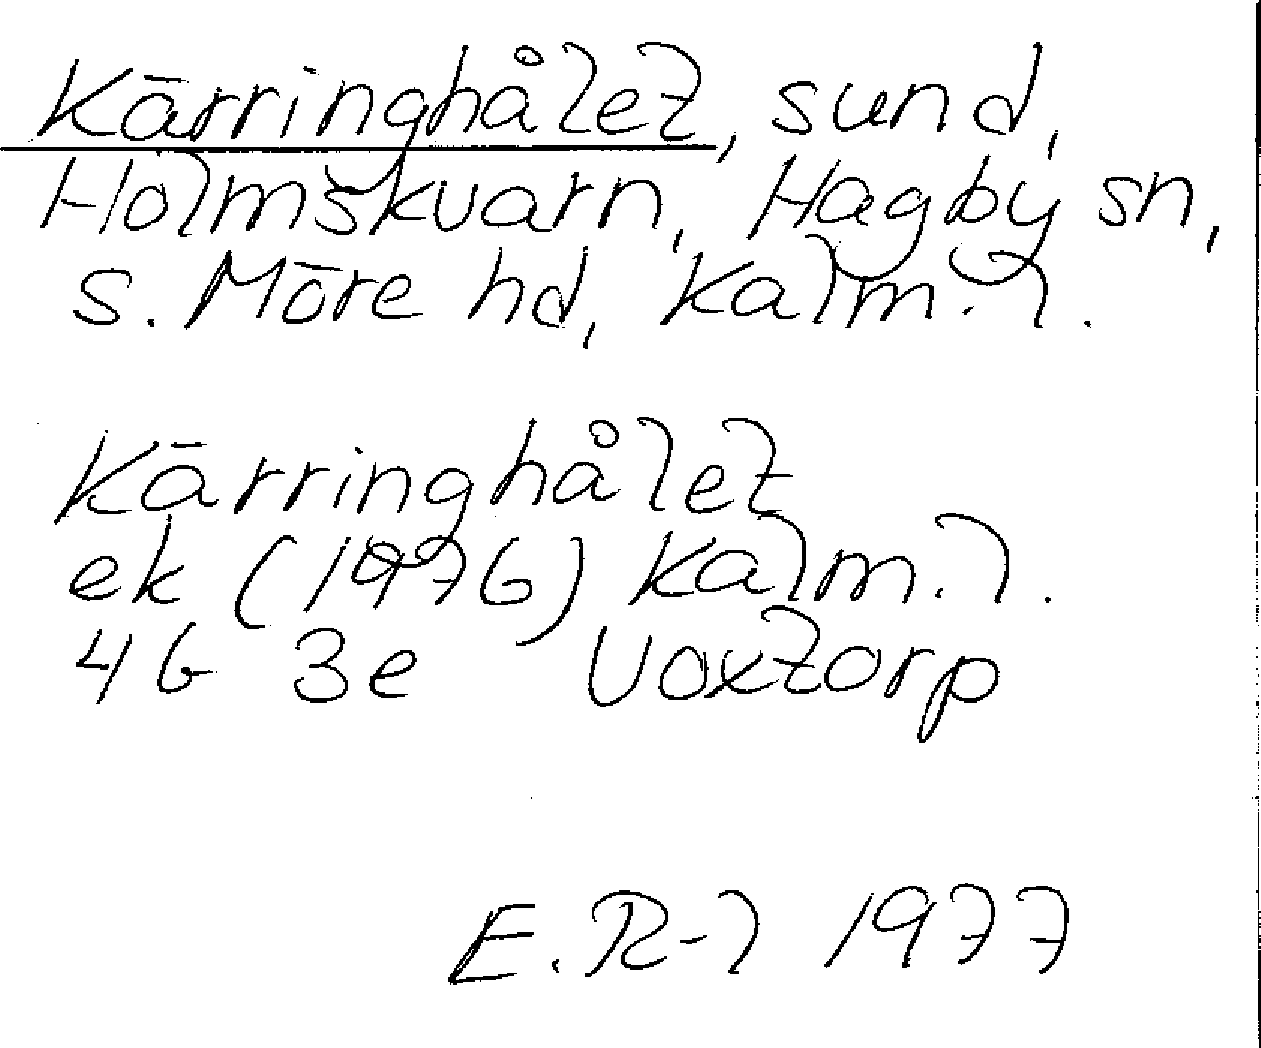 Kärringhålet, sund,
Holmskvarn, Hagby sn,
s. Möre hd, Kalm. l.
Kärringhålet
ek (1976) Kalm. l.
4G 3e Voxtorp
E. R-l 1977